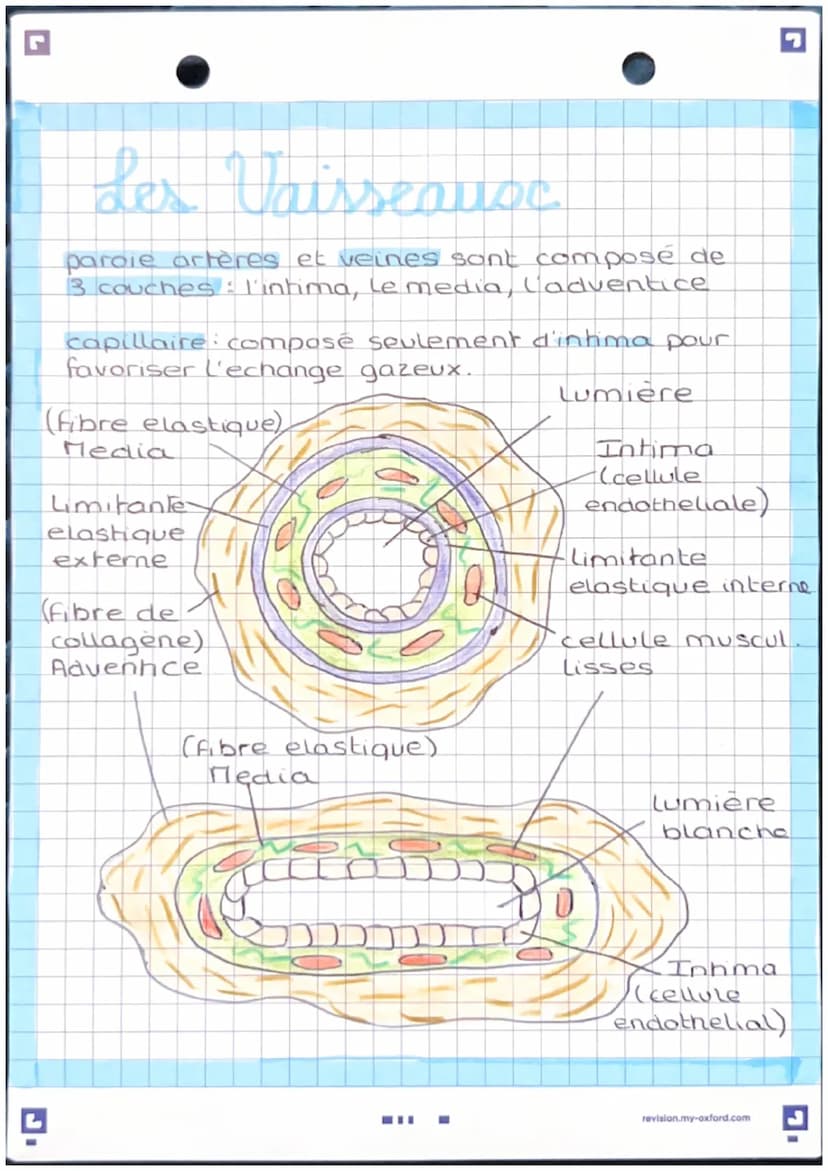 Les Vaisseaux
paroie artères et veines sont composé de
3 couches : l'intima, le media, l'adventice
capillaire : composé seulement d'intima pour
favoriser l'echange gazeux.
Lumière
(fibre elastique)
Media
Intima
(cellule
endotheliale)
Limitante
elastique
externe
Limitante
elastique interne
(fibre de
collagène)
Adventice
cellule muscul.
lisses
(fibre elastique)
Media
Lumière
blanche
Intima
(cellule
endothelial)
revision.my-oxford.com